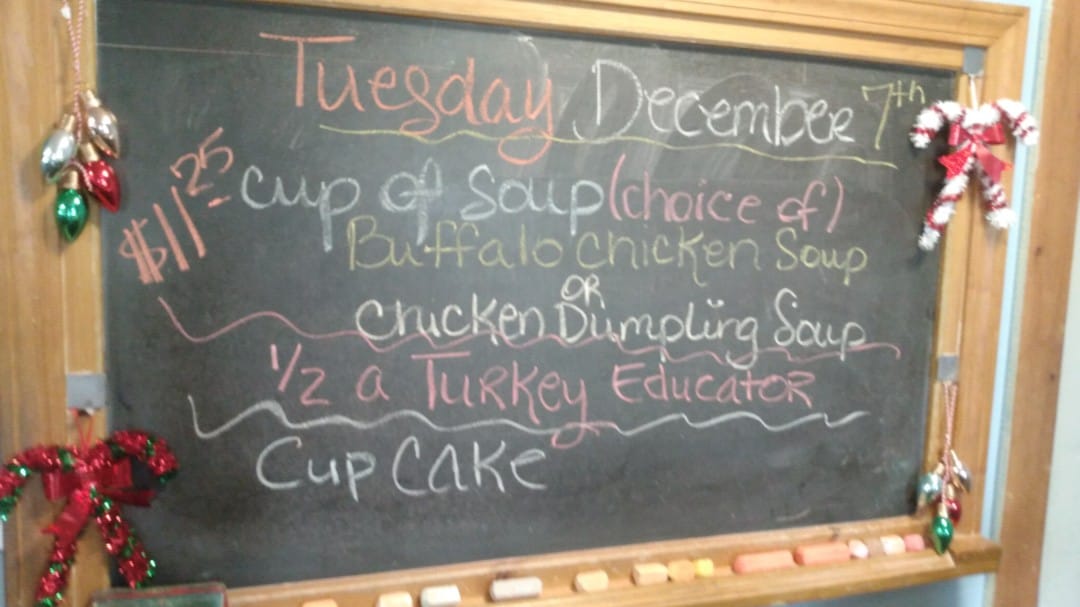 Tuesday December 7th
$11.25 cup of Soup (choice of)
Buffalo chicken Soup
OR
Chicken Dumpling Soup
1/2 a Turkey Educator
Cup Cake